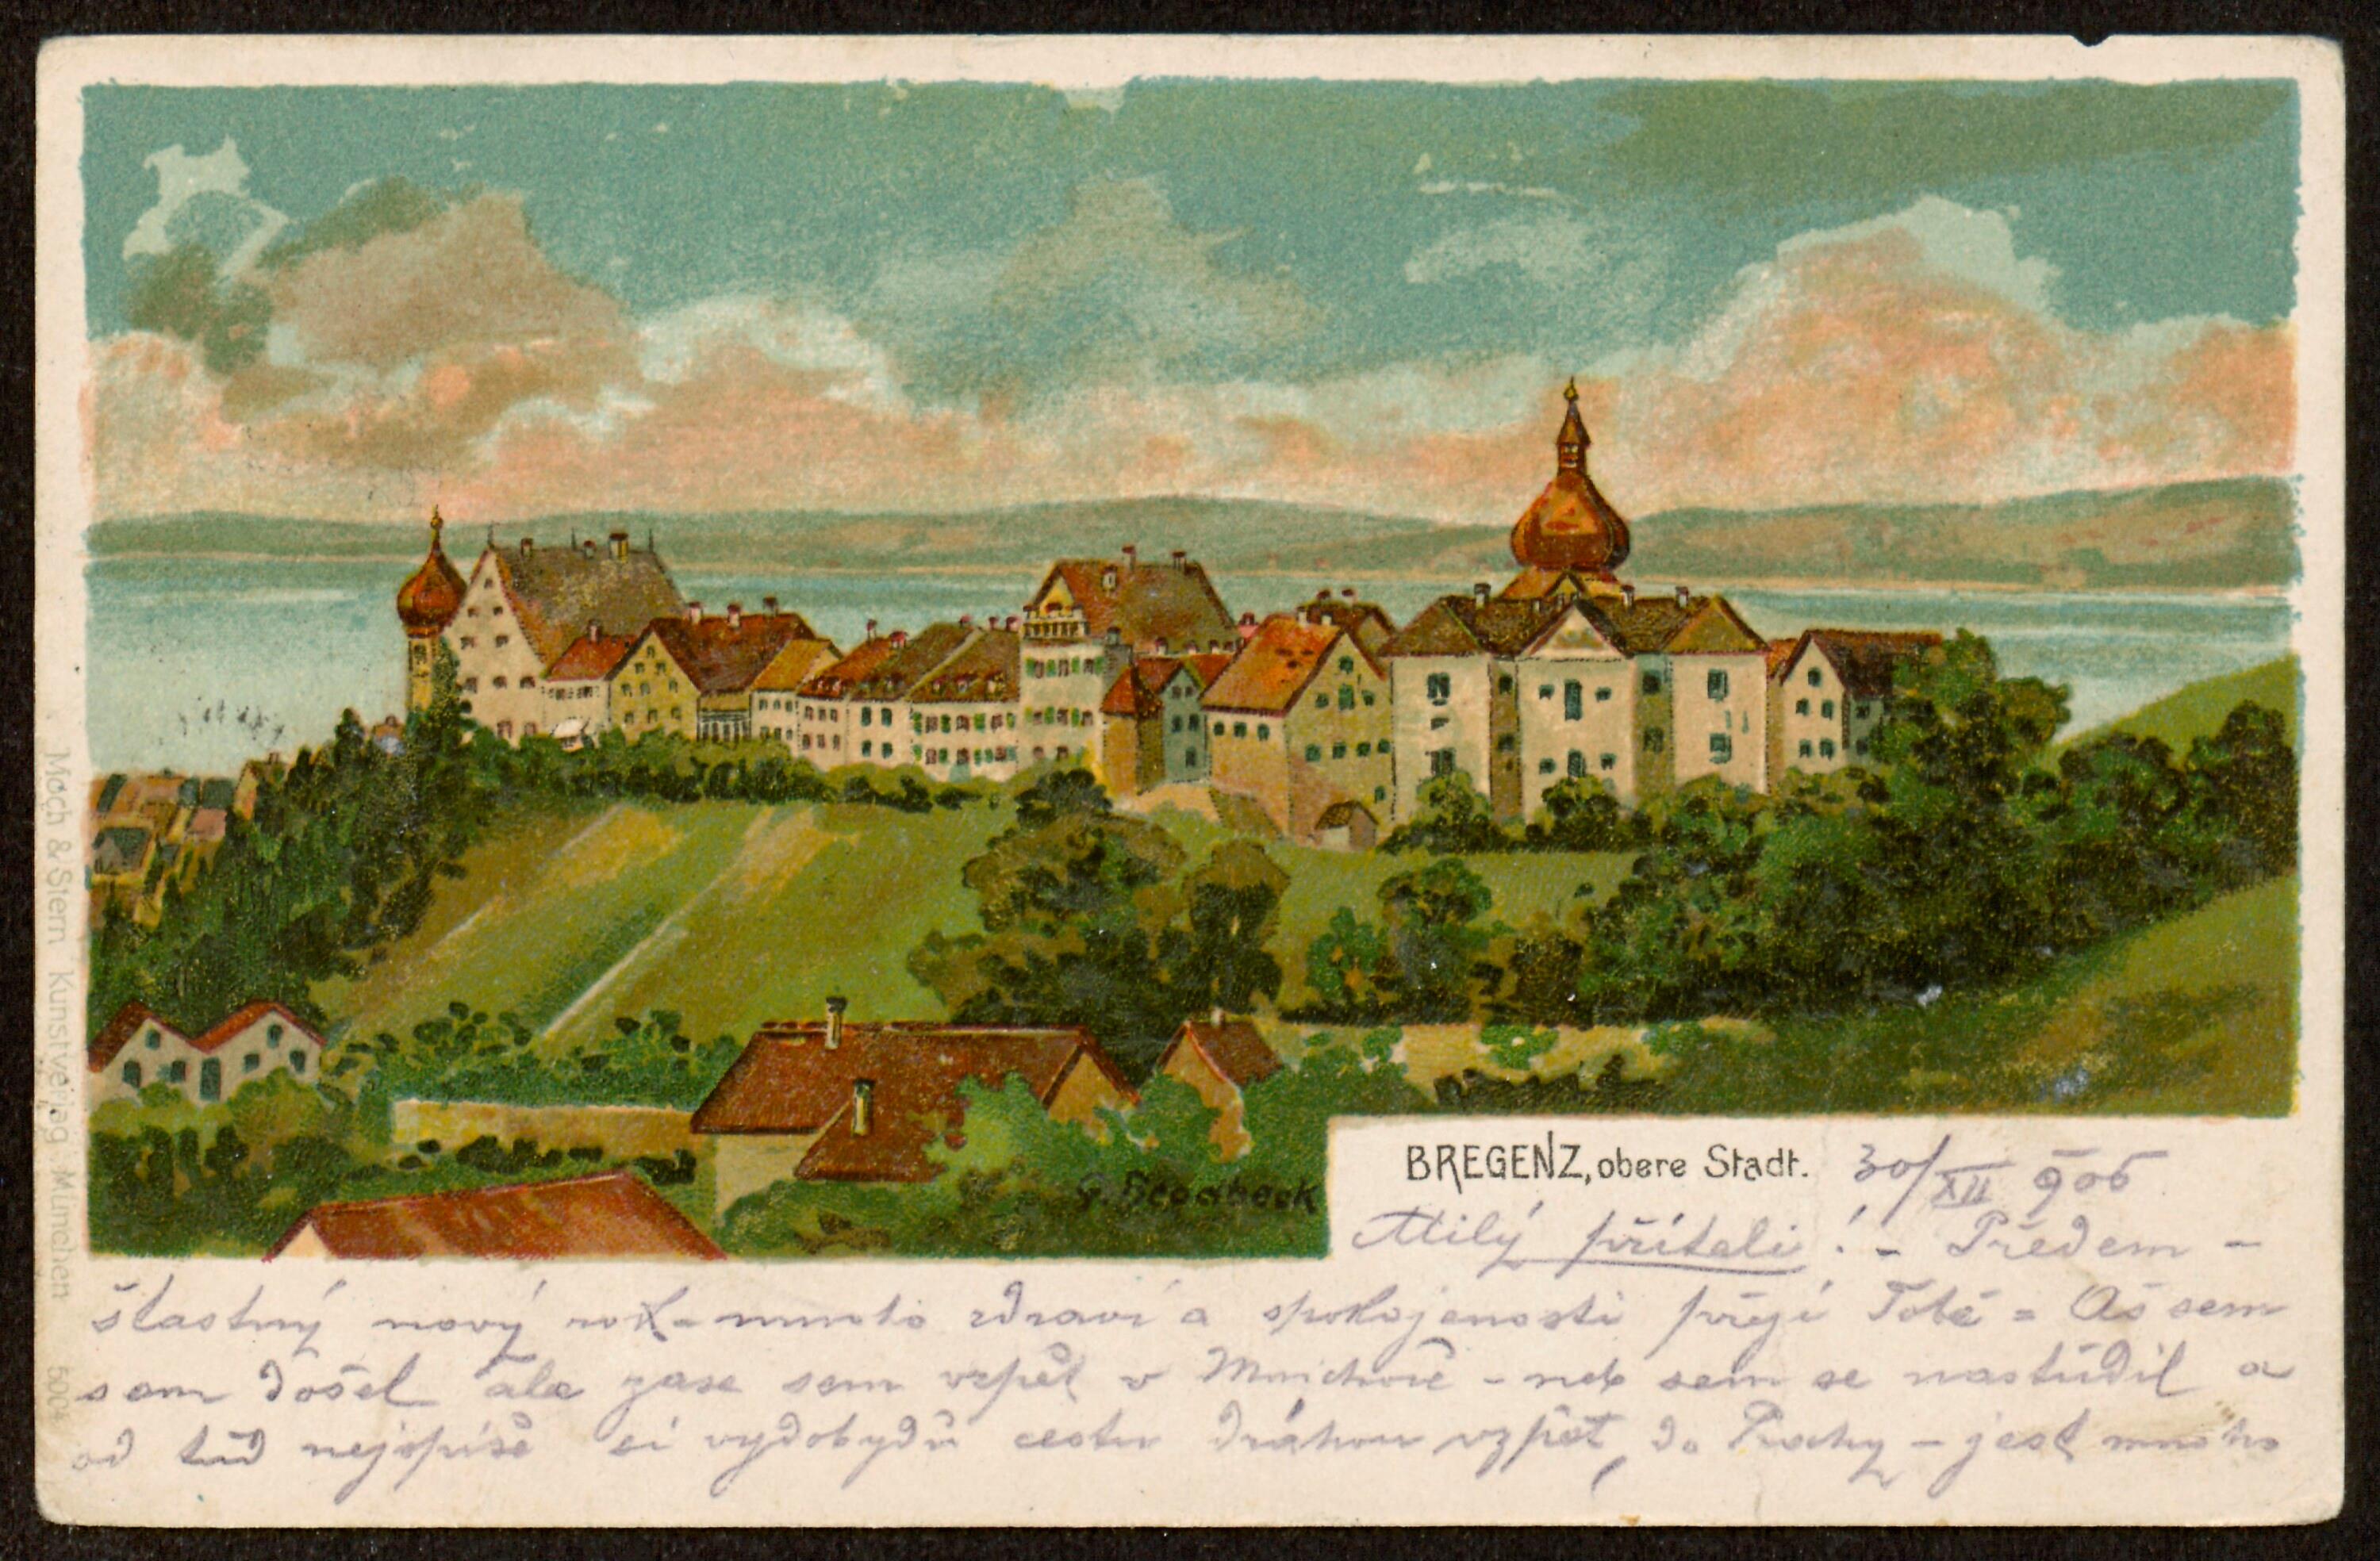 BREGENZ, obere Stadt. 30/XII 906
Milý příteli! - Předem -
šťastný nový rok - mnoho zdraví a spokojenosti přejí Tobě = Aš sem
sem došel ale zase sem vzpět v Mnichově - neb sem se nastúdil a
od tud nejspíše si vydobydu cestu dráhou vzpět, do Prahy - jest mnoho
Moch & Stern Kunstverlag, München